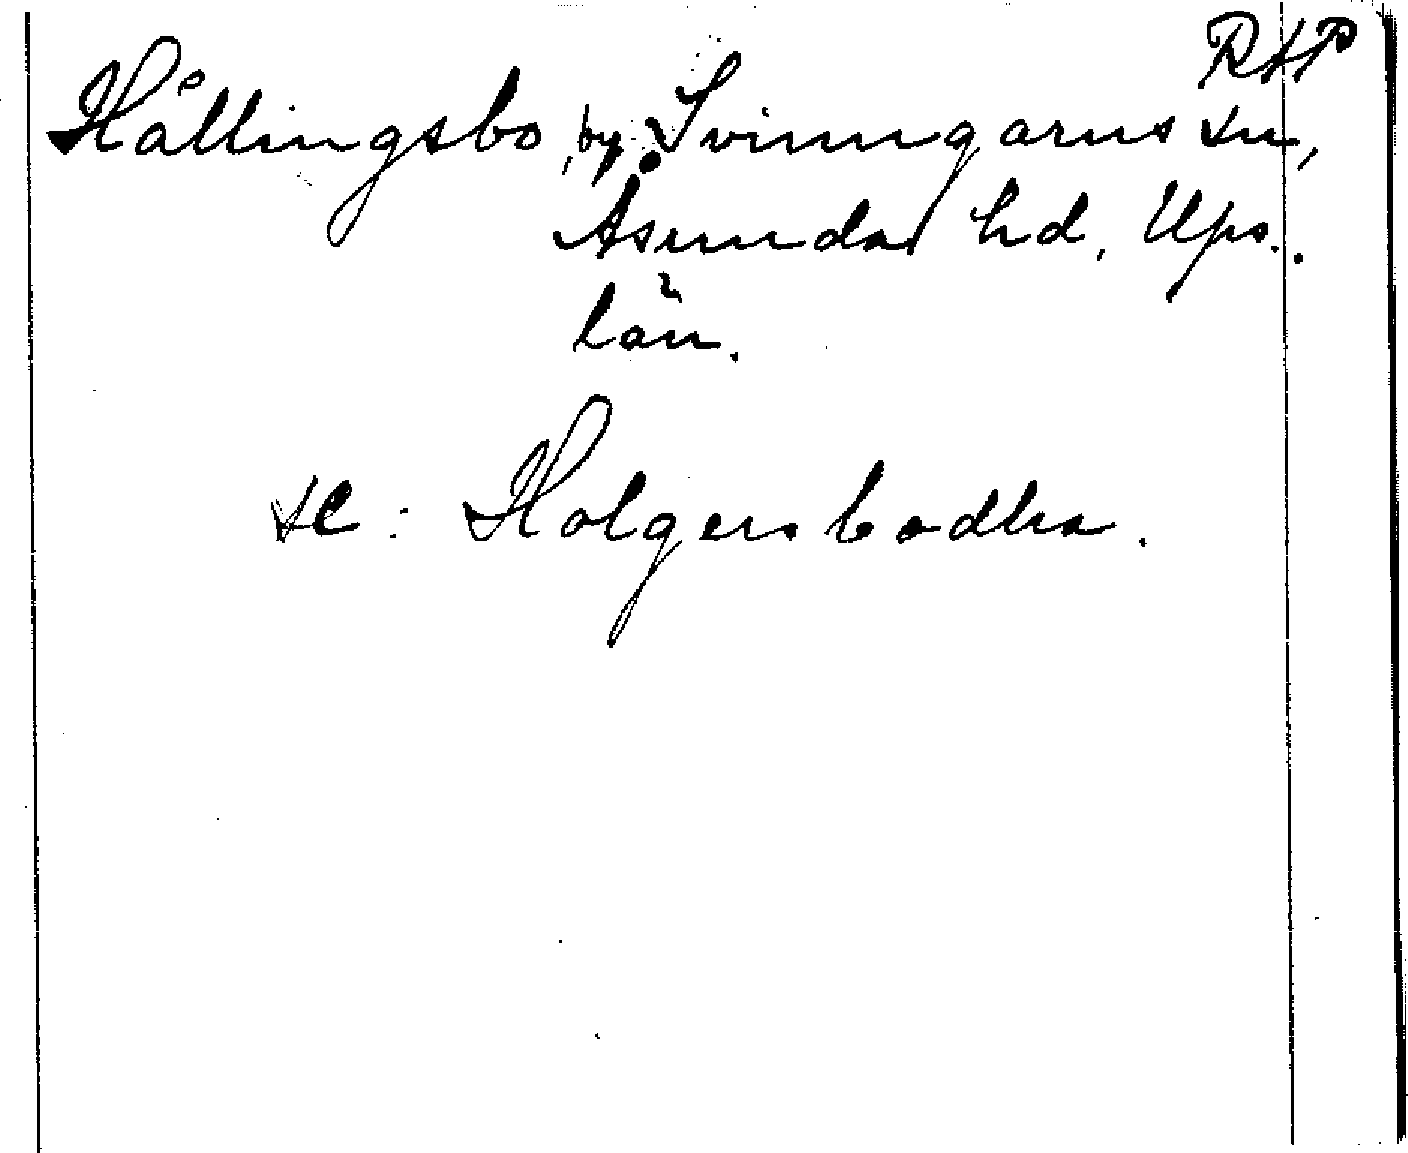 RAP
Hållingsbo, by, Svinngarns sn,
Åsunda hd, Ups.
län.
se: Holgersbodha.